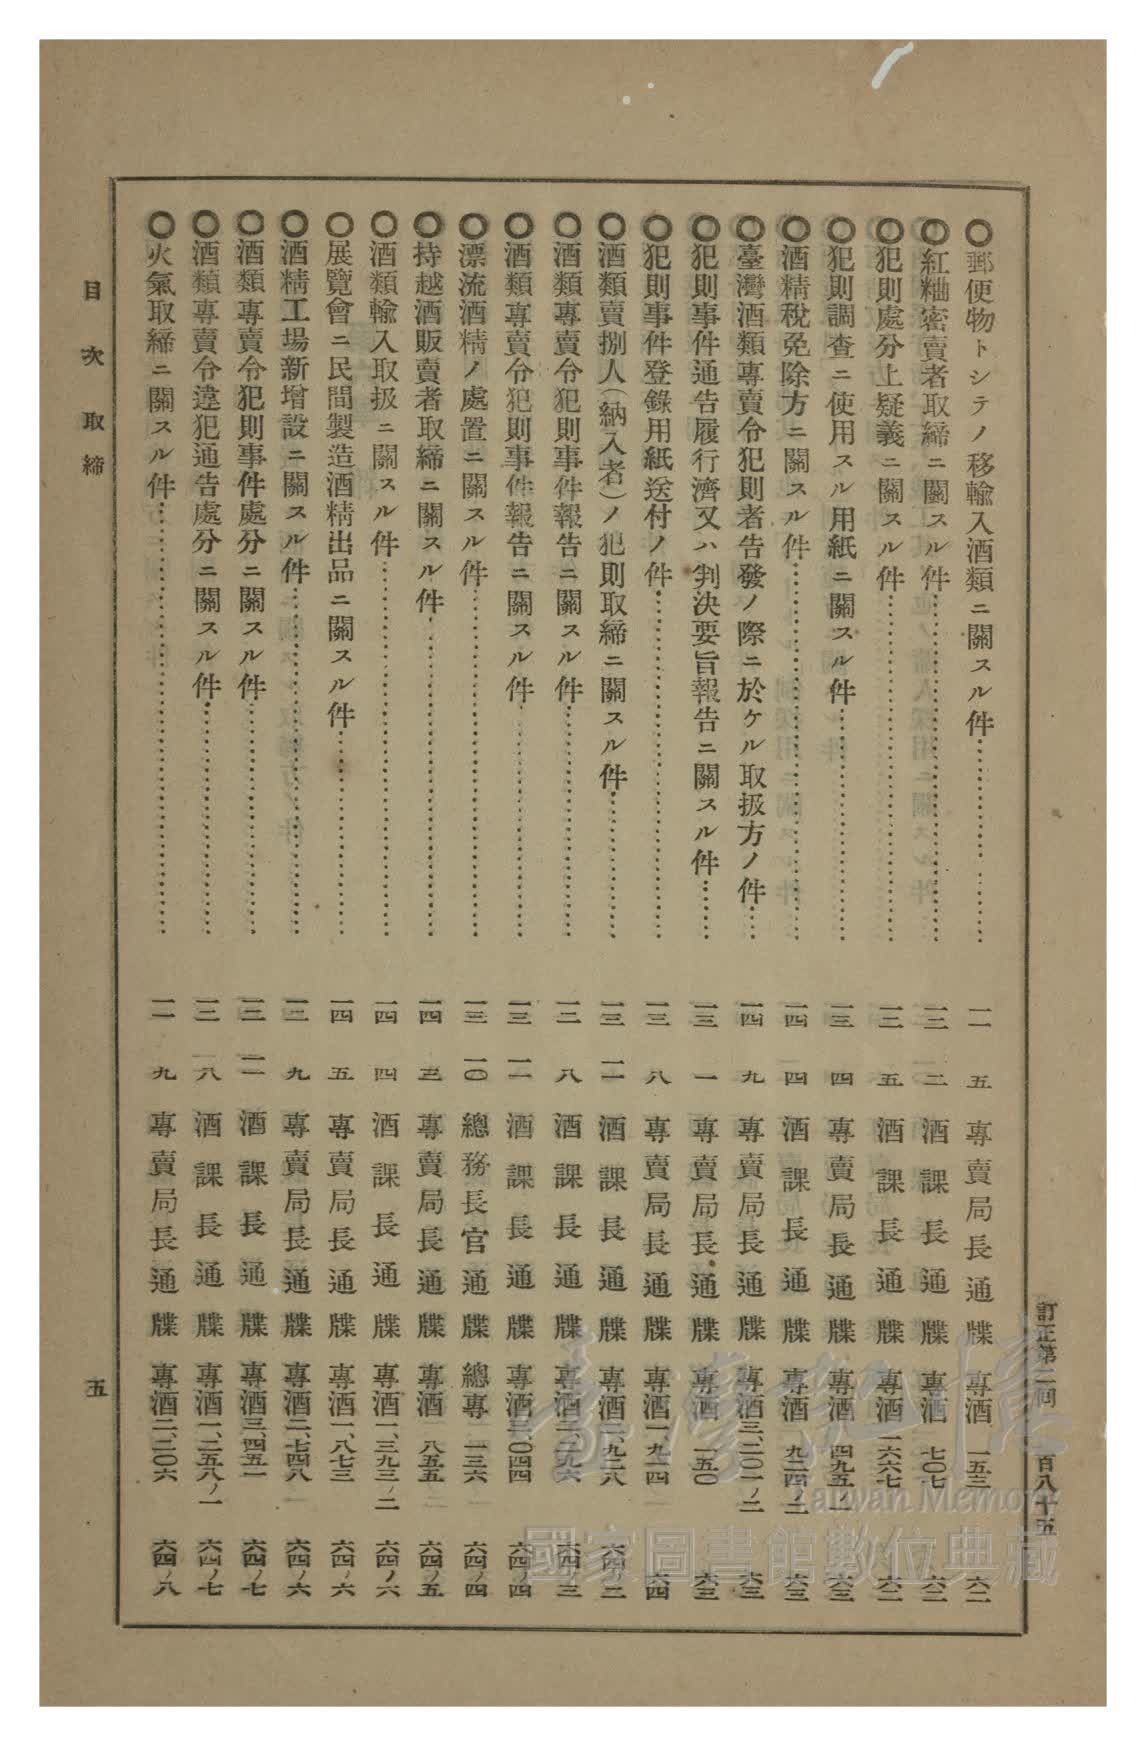 訂正第一回 百八十五
○郵便物トシテノ移輸入酒類ニ關スル件………… 一一 五 專賣局長通牒 專酒 一五三 六二
○紅粬密賣者取締ニ關スル件………… 一三 二 酒課長通牒 專酒 七〇七 六二
○犯則處分上疑義ニ關スル件………… 一三 五 酒課長通牒 專酒 一六六七 六二
○犯則調査ニ使用スル用紙ニ關スル件………… 一三 四 專賣局長通牒 專酒 四九五ノ一 六三
○酒精稅免除方ニ關スル件………… 一四 四 酒課長通牒 專酒 九二四ノ三 六三
○臺灣酒類專賣令犯則者告發ノ際ニ於ケル取扱方ノ件…… 一四 九 專賣局長通牒 專酒三、二〇一ノ二 六三
○犯則事件通告履行濟又ハ判決要旨報告ニ關スル件…… 一三 一 專賣局長通牒 專酒 一五〇 六三
○犯則事件登錄用紙送付ノ件………… 一三 八 專賣局長通牒 專酒一、九一四 六四
○酒類賣捌人(納入者)ノ犯則取締ニ關スル件………… 一三 一一 酒課長通牒 專酒 六四ノ二
○酒類專賣令犯則事件報告ニ關スル件………… 一二 八 酒課長通牒 專酒二、二九六 六四ノ三
○酒類專賣令犯則事件報告ニ關スル件………… 一三 一一 酒課長通牒 專酒三、〇四四 六四ノ四
○漂流酒精ノ處置ニ關スル件………… 一三 一〇 總務長官通牒 總專 一三六 六四ノ四
○持越酒販賣者取締ニ關スル件………… 一四 三 專賣局長通牒 專酒 八五五 六四ノ五
○酒類輸入取扱ニ關スル件………… 一四 四 酒課長通牒 專酒一、三九三ノ二 六四ノ六
○展覽會ニ民間製造酒精出品ニ關スル件………… 一四 五 專賣局長通牒 專酒一、八七三 六四ノ六
○酒精工場新增設ニ關スル件………… 一二 九 專賣局長通牒 專酒二、七四八 六四ノ六
○酒類專賣令犯則事件處分ニ關スル件………… 一三 一一 酒課長通牒 專酒三、四五一 六四ノ七
○酒類專賣令違犯通告處分ニ關スル件………… 一三 八 酒課長通牒 專酒一、二五八ノ一 六四ノ七
○火氣取締ニ關スル件………… 一一 九 專賣局長通牒 專酒二、二〇六 六四ノ八
目次 取締 五
臺灣記憶
Taiwan Memory
國家圖書館數位典藏